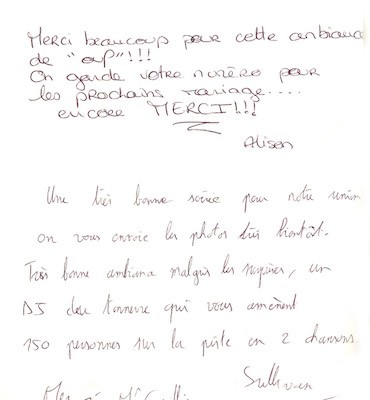 Merci beaucoup pour cette ambiance
de "ouf"!!!
On garde votre numéro pour
les prochains mariage....
encore MERCI!!!
Alison
Une très bonne soirée pour notre union
on vous envoie les photos très bientôt.
Très bonne ambiance malgré les, un
DJ du tonnerre qui vous amènent
150 personnes sur la piste en 2 chansons.